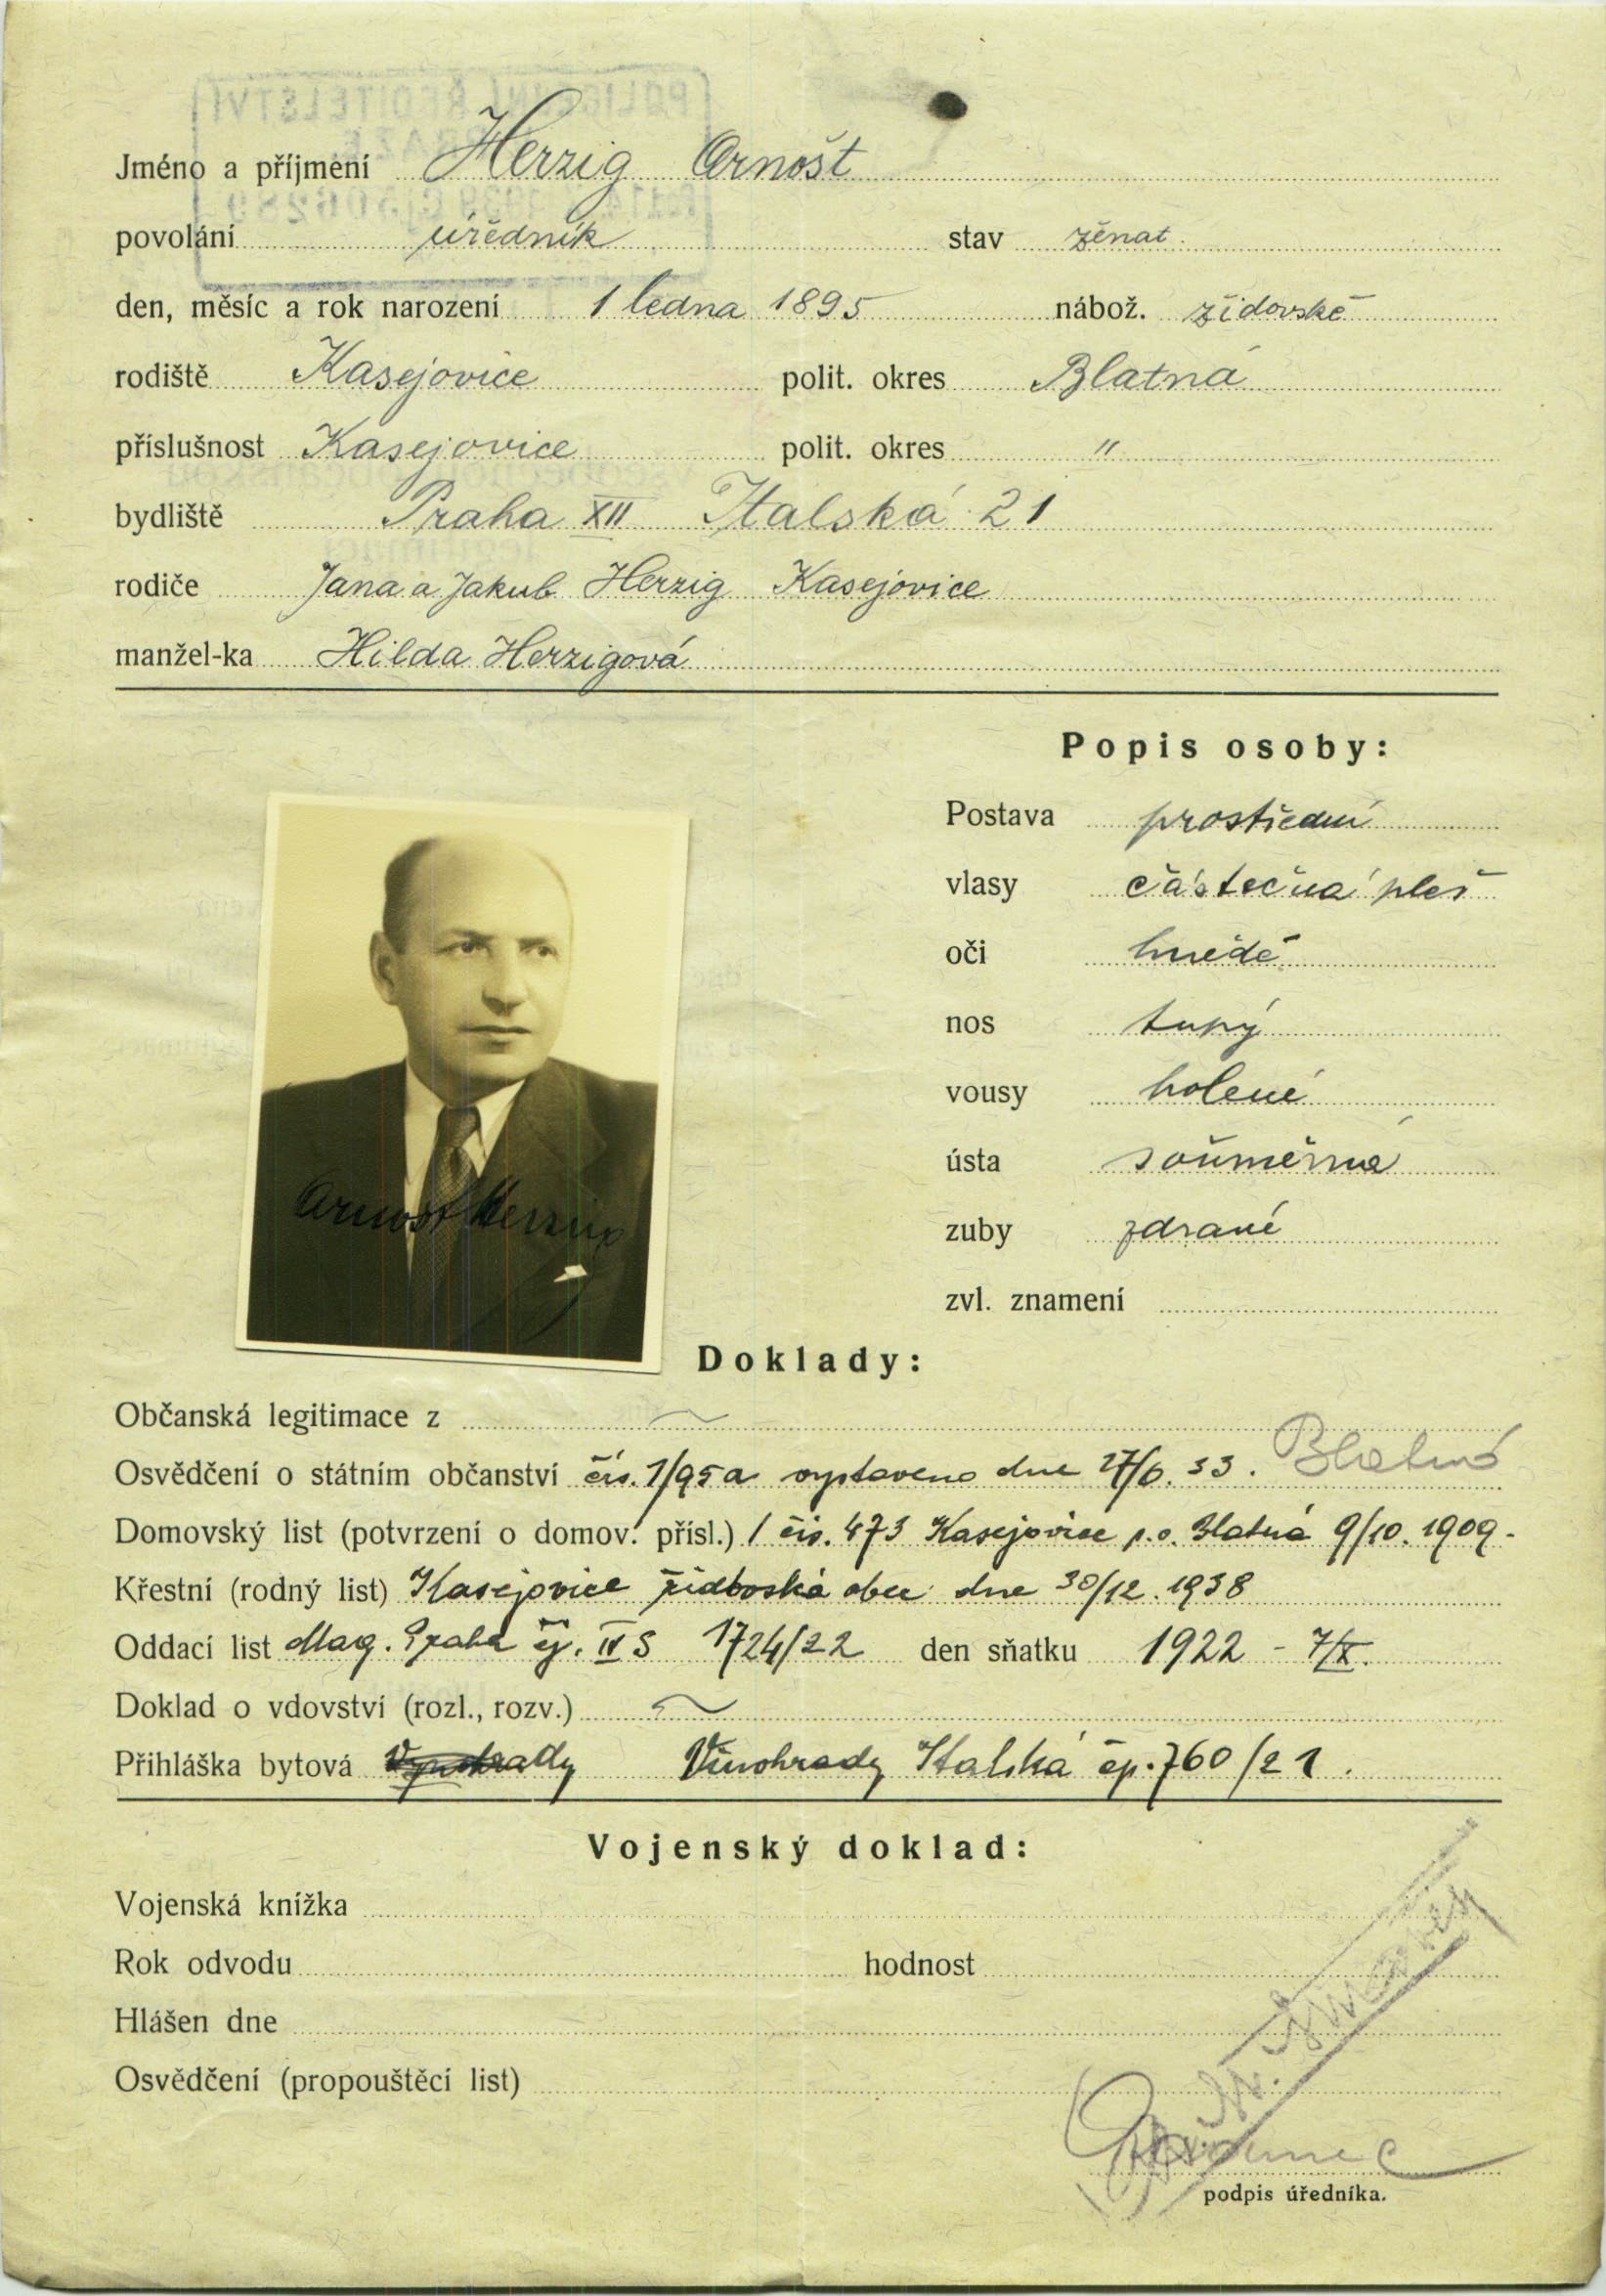 Jméno a příjmení Herzig Arnošt
povolání úředník stav ženat.
den, měsíc a rok narození 1 ledna 1895 nábož. židovské
rodiště Kasejovice polit. okres Blatná
příslušnost Kasejovice polit. okres "
bydliště Praha XII Italská 21
rodiče Jana a Jakub Herzig Kasejovice
manžel-ka Hilda Herzigová
Popis osoby:
Postava prostřední
vlasy částečná pleš
oči hnědé
nos tupý
vousy holené
ústa souměrná
zuby zdravé
zvl. znamení
Arnošt Herzig
Doklady:
Občanská legitimace z
Osvědčení o státním občanství čís. 1/95a vystaveno dne 27/6. 33. Blatná
Domovský list (potvrzení o domov. přísl.) / čís. 473 Kasejovice p.o. Blatná 9/10. 1909.
Křestní (rodný list) Kasejovice židovská obec dne 30/12. 1938
Oddací list Mag. Praha čj. IV S 1724/22 den sňatku 1922 - 7/X.
Doklad o vdovství (rozl., rozv.)
Přihláška bytová Vinohrady Italská čp. 760/21.
Vojenský doklad:
Vojenská knížka
Rok odvodu hodnost
Hlášen dne
Osvědčení (propouštěcí list)
podpis úředníka.